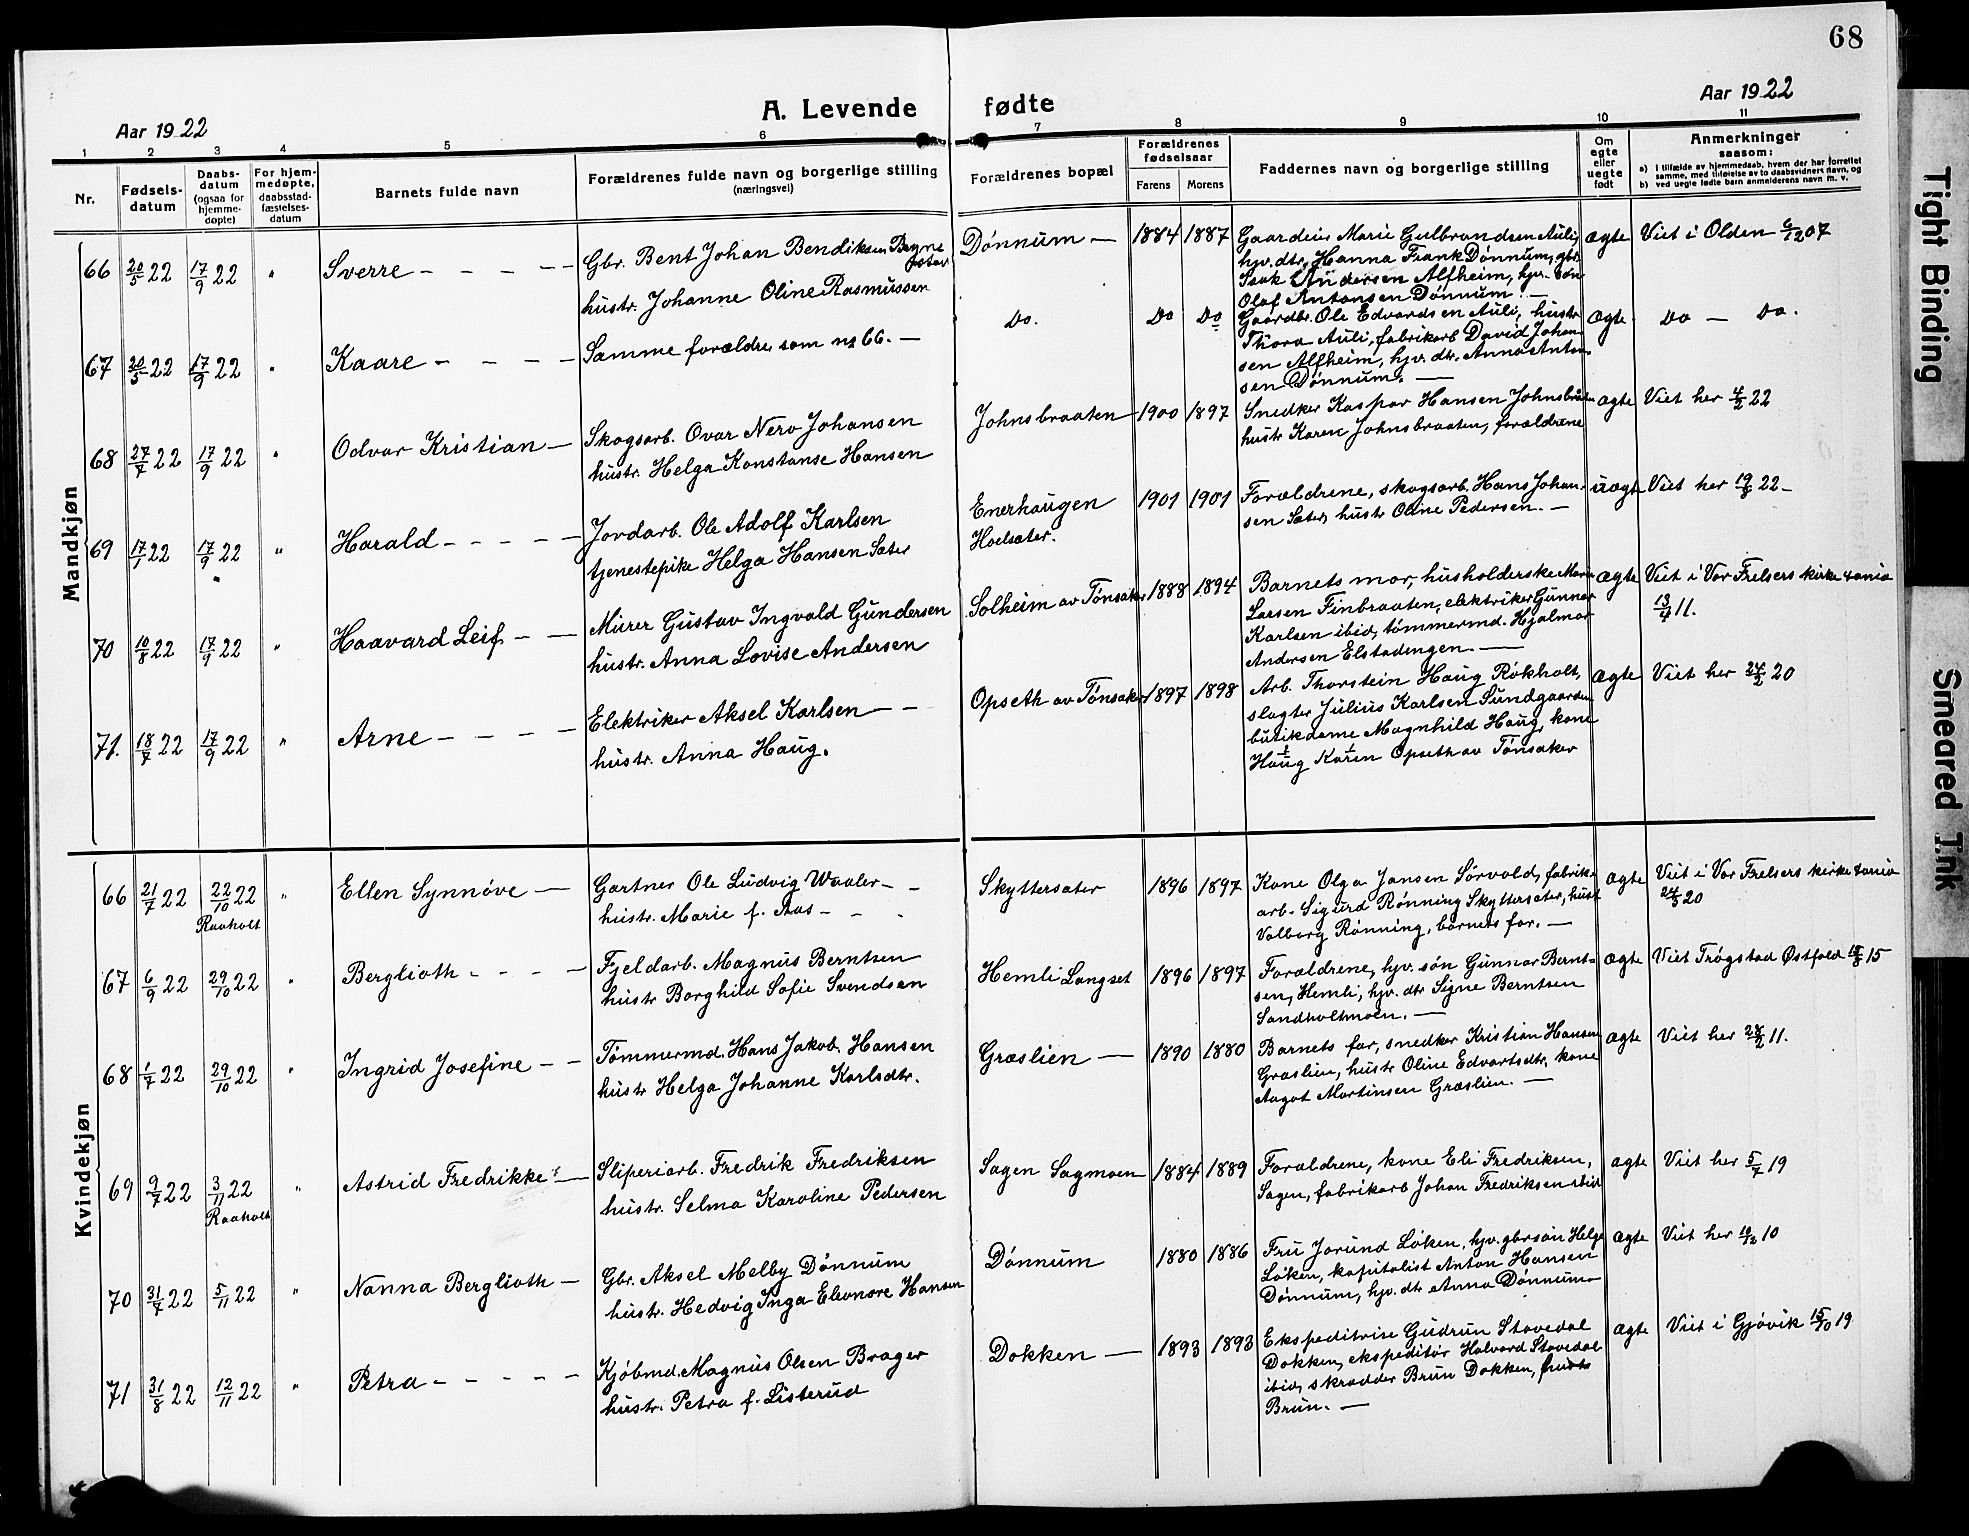 68
Aar 1922
A. Levende fødte
Aar 1922
1 2 3 4 5 6 7 8 9 10 11
Nr.
Fødsels-
datum
Daabs-
datum
(ogsaa for
hjemme-
døpte)
For hjem-
medøpte,
daabsstad-
fæstelses-
datum
Barnets fulde navn
Forældrenes fulde navn og borgerlige stilling
(næringsvei)
Forældrenes bopæl
Forældrenes
fødselsaar
Farens Morens
Faddernes navn og borgerlige stilling
Om
egte
eller
uegte
født
Anmerkninger
saasom:
a) I tilfælde av hjemmedaab, hvem der har forrettet
samme, med tilføielse av to daabsvidners navn, og
b) ved uegte fødte barn anmelderens navn m. v.
Mandkjøn
66 20/5 22 17/9 22 " Sverre
Gbr. Bent Johan Bendiksen
hustr. Johanne Oline Rasmussen
Dønnum — 1884 1887
Gaardeier Marie Gulbrandsen Auli,
hjv. dtr. Hanna Frank Dønnum, gbr.
Isak Andersen Alfheim, hjv. søn
Olaf Antonsen Dønnum. —
ægte Viet i Olden 6/12 07
67 20/5 22 17/9 22 " Kaare
Samme forældre som nr 66. —
Do. Do Do
Gaardbr. Ole Edvardsen Auli, hustr
Thora Auli, fabrikarb David Johan-
sen Alfheim, hjv. dtr. Anna Anton-
sen Dønnum. —
ægte Do — Do.
68 27/7 22 17/9 22 " Odvar Kristian —
Skogsarb. Ovar Nero Johansen
hustr. Helga Konstanse Hansen
Johnsbraaten 1900 1897
Snedker Kaspar Hansen Johnsbråten
hustr Karen Johnsbraaten, forældrene
ægte Viet her 4/2 22
69 17/7 22 17/9 22 " Harald
Jordarb. Ole Adolf Karlsen
tjenestepike Helga Hansen Sæter
Enerhaugen
Hoelsæter.
1901 1901
Forældrene, skogsarb. Hans Johan-
sen Sæter, hustr Oline Pedersen. —
uægte Viet her 19/8 22 –
70 10/8 22 17/9 22 " Haavard Leif
Murer Gustav Ingvald Gundersen
hustr. Anna Lovise Andersen
Solheim av Tønsaker 1888 1894
Barnets mor, husholderske Marie
Larsen Finbraaten, elektriker Gunnar
Karlsen ibid, tømmermd. Hjalmar
Andersen Elstadengen. —
ægte Viet i Vor Frelsers kirke
13/4 11.
71. 18/7 22 17/9 22 " Arne
Elektriker Aksel Karlsen
hustr. Anna Haug.
Opseth av Tønsaker 1897 1898
Arb. Thorstein Haug Røkholt,
slagter Julius Karlsen Sundgaarden
butikdame Magnhild Haug, kone
Haug Karen Opseth av Tønsaker
ægte Viet her 24/2 20
Kvindekjøn
66 21/7 22 22/10 22 " Ellen Synnøve —
Raaholt
Gartner Ole Ludvig Waaler
hustr. Marie f. Aas
Skyttersæter 1896 1897
Kone Olga Jansen Sørvald, fabrik-
arb. Sigurd Rønning Skyttersæter, hustr
Valborg Rønning, barnets far. —
ægte Viet i Vor Frelsers kirke
24/5 20
67 6/9 22 29/10 22 " Berglioth
Fjeldarb. Magnus Berntsen
hustr Borghild Sofie Svendsen
Hemli Langset 1896 1897
Forældrene, hjv. søn Gunnar Bernt-
sen, Hemli, hjv. dtr Signe Berntsen
Sandholtmoen. —
ægte Viet Trøgstad Østfold 15/8 15
68 1/7 22 29/10 22 " Ingrid Josefine
Tømmermd. Hans Jakob Hansen
hustr Helga Johanne Karlsdtr.
Græslien — 1890 1880
Barnets far, snedker Kristian Hansen
Græslien, hustr Oline Edvartsdtr, kone
Aagot Martinsen Græslien. —
ægte Viet her 28/2 11.
69 9/7 22 3/11 22 " Astrid Fredrikke
Raaholt
Sliperiarb. Fredrik Fredriksen
hustr. Selma Karoline Pedersen
Sagen Sagmoen 1884 1889
Forældrene, kone Eli Fredriksen,
Sagen, fabrikarb Johan Fredriksen ibid
ægte Viet her 5/7 19
70 31/7 22 5/11 22 " Nanna Berglioth —
Gbr. Aksel Melby Dønnum
hustr. Hedvig Inga Eleonore Hansen
Dønnum 1880 1886
Fru Jorund Løken, hjv. gbrsøn Helge
Løken, kapitalist Anton Hansen
Dønnum, hjv. dtr Anna Dønnum
ægte Viet her 10
71 31/8 22 12/11 22 " Petra
Kjøbmd. Magnus Olsen Brager
hustr. Petra f. Listerud
Dokken — 1893 1893
Ekspeditrise Gudrun Stavedal
Dokken, ekspeditør Halvard Stavedal
ibid, skrædder Brun Dokken,
Brun. —
ægte Viet i Gjøvik 15/10 19
Tight Binding
Smeared Ink